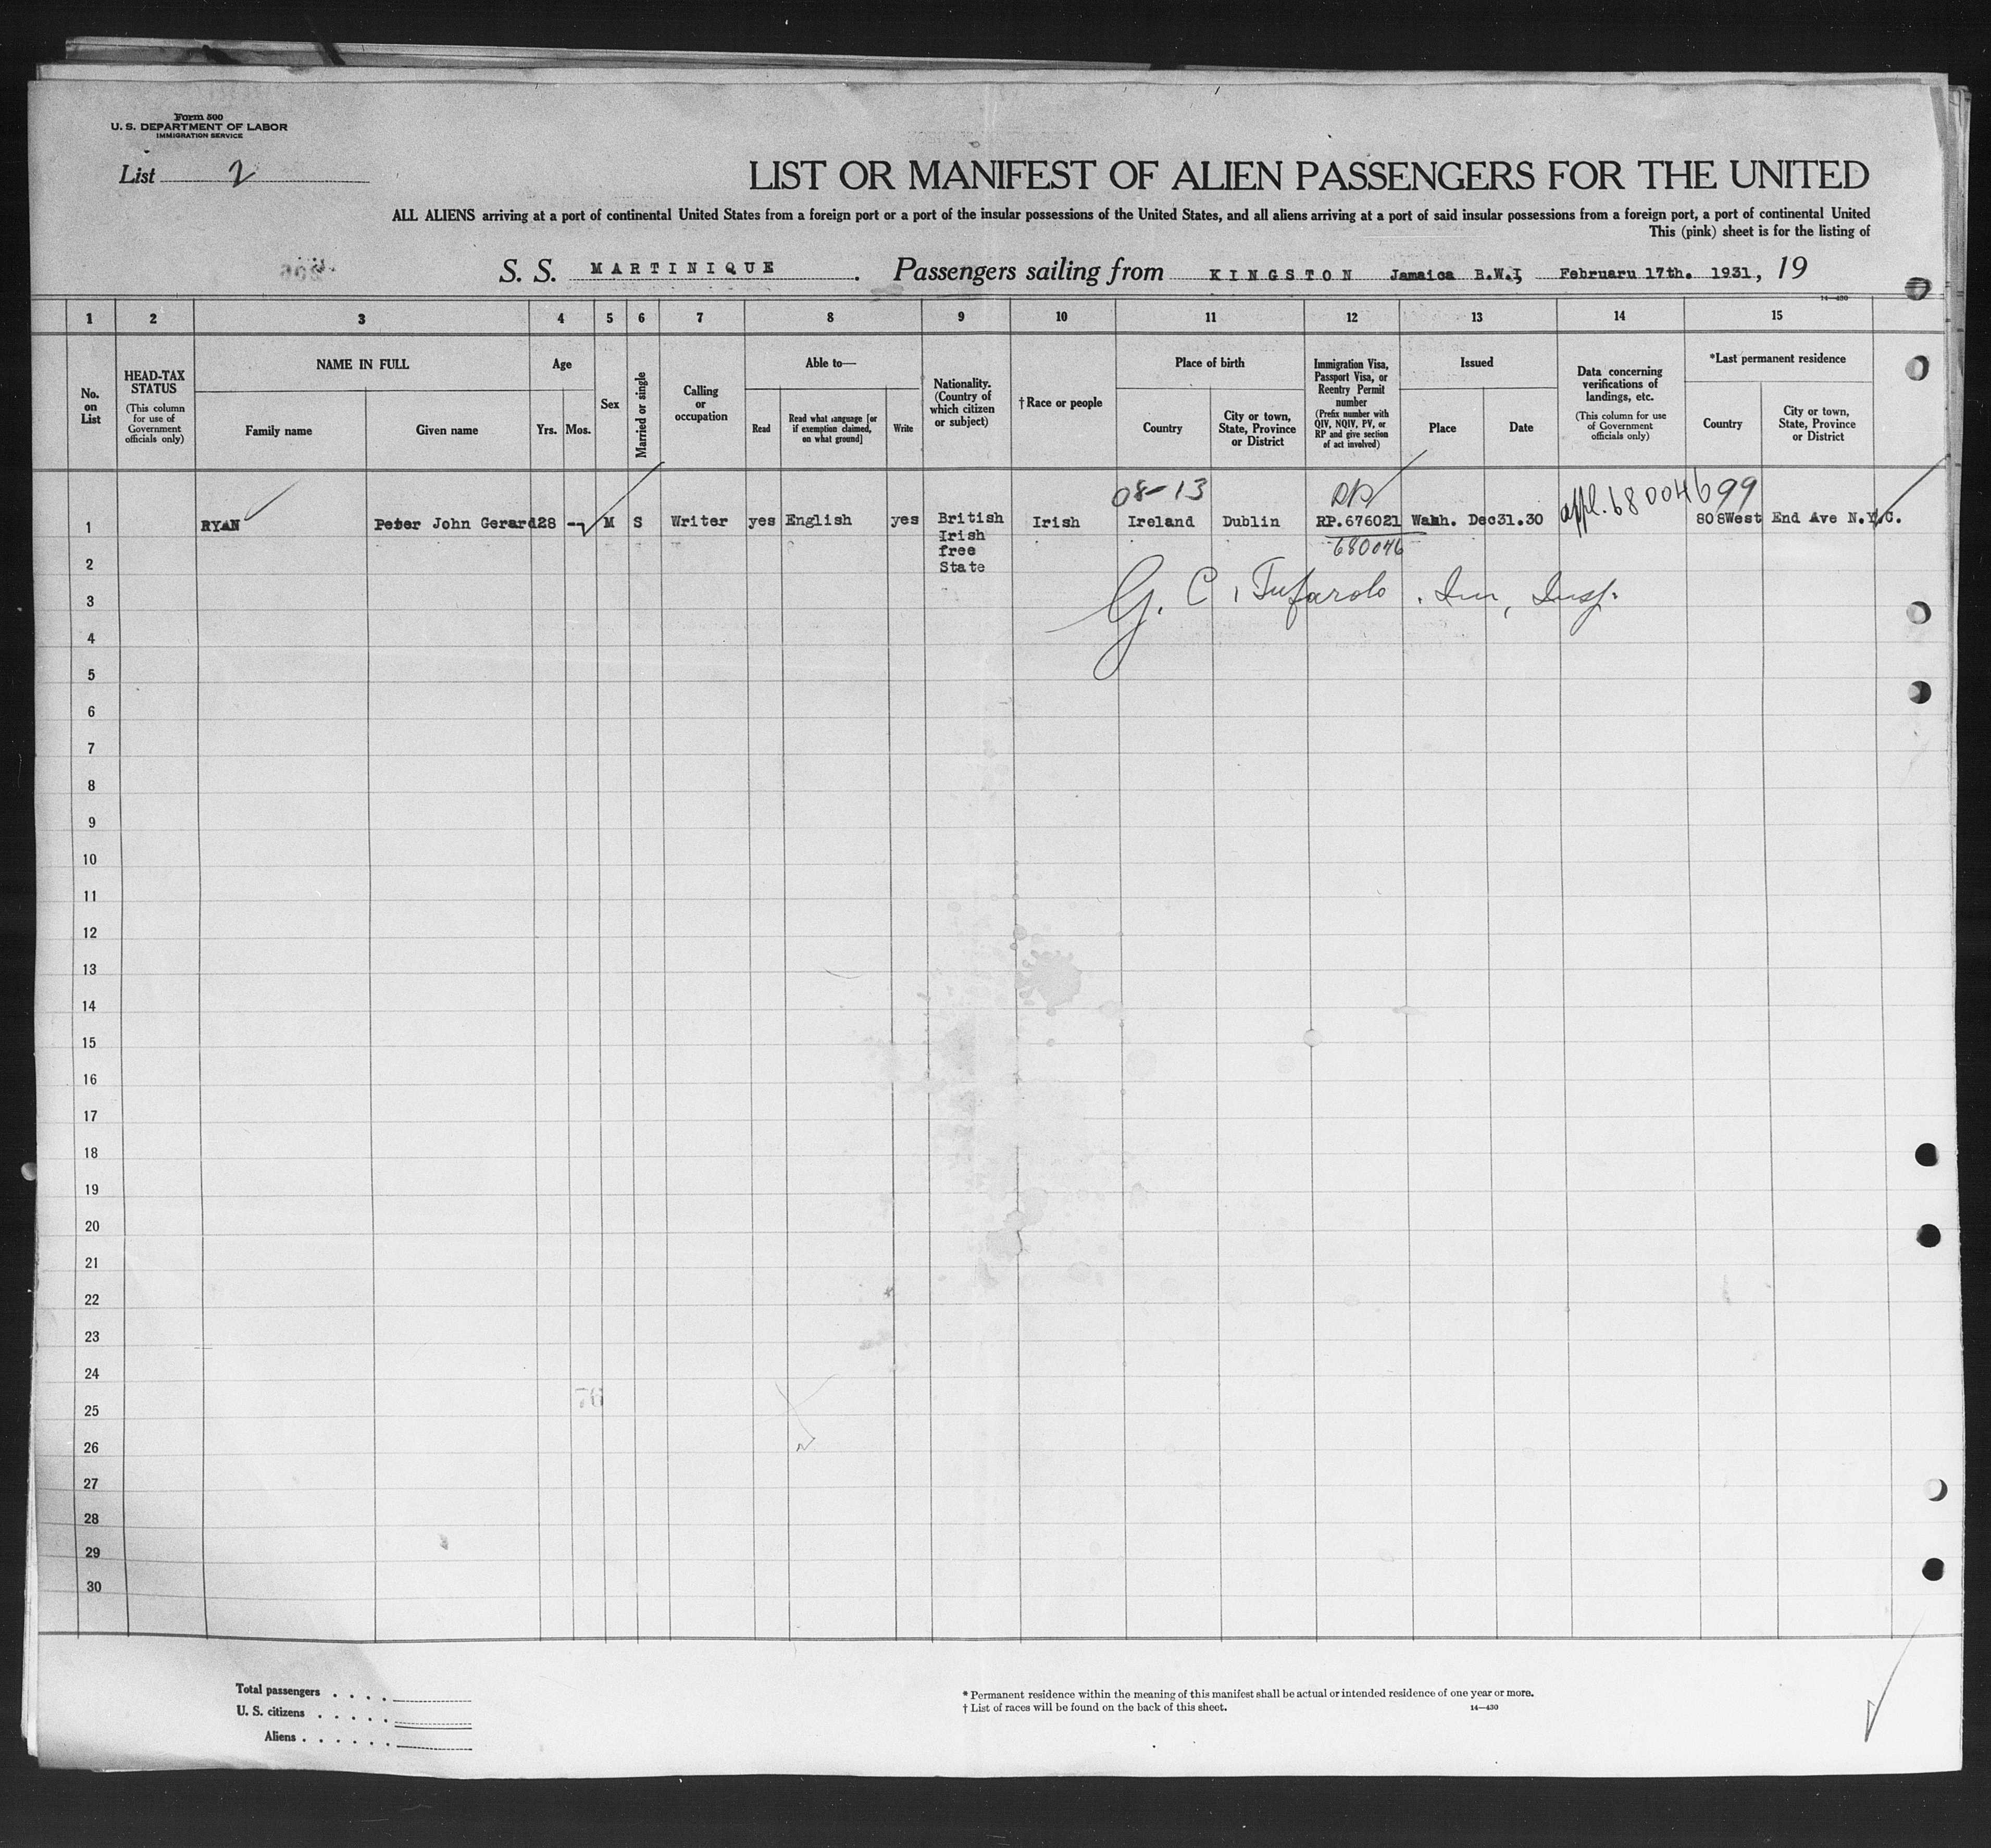 Form 500
U. S. DEPARTMENT OF LABOR
IMMIGRATION SERVICE
List 2
LIST OR MANIFEST OF ALIEN PASSENGERS FOR THE UNITED
ALL ALIENS arriving at a port of continental United States from a foreign port or a port of the insular possessions of the United States, and all aliens arriving at a port of said insular possessions from a foreign port, a port of continental United
This (pink) sheet is for the listing of
S. S. MARTINIQUE. Passengers sailing from KINGSTON Jamaica B.W.I, Februaru 17th. 1931, 19
14—430
1 2 3 4 5 6 7 8 9 10 11 12 13 14 15
No. on List
HEAD-TAX STATUS
(This column for use of Government officials only)
NAME IN FULL
Family name
Given name
Age
Yrs. Mos.
Sex
Married or single
Calling or occupation
Able to—
Read
Read what language [or if exemption claimed, on what ground]
Write
Nationality. (Country of which citizen or subject)
† Race or people
Place of birth
Country
City or town, State, Province or District
Immigration Visa, Passport Visa, or Reentry Permit number
(Prefix number with QIV, NQIV, PV, or RP and give section of act involved)
Issued
Place
Date
Data concerning verifications of landings, etc.
(This column for use of Government officials only)
*Last permanent residence
Country
City or town, State, Province or District
08-13
appl. 680046 99
1 RYAN Peter John Gerard 28 -- M S Writer yes English yes British Irish Ireland Dublin RP.676021 Wash. Dec31.30 808West End Ave N.Y.C.
Irish
free
State
680046
G. C. Tufarolo. Im, Insp.
2
3
4
5
6
7
8
9
10
11
12
13
14
15
16
17
18
19
20
21
22
23
24
76
25
26
27
28
29
30
Total passengers . . . .
U. S. citizens . . . . .
Aliens . . . . . .
* Permanent residence within the meaning of this manifest shall be actual or intended residence of one year or more.
† List of races will be found on the back of this sheet.
14—430